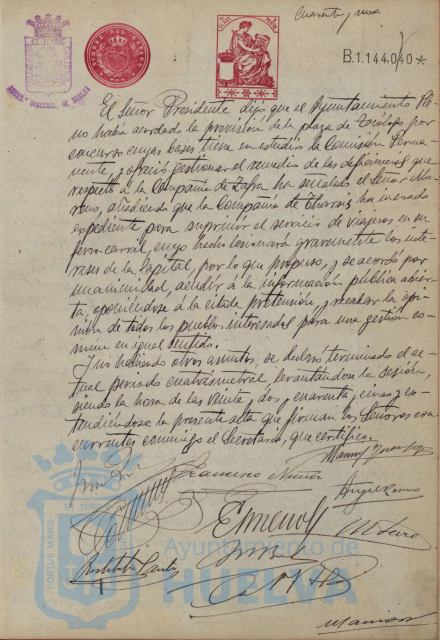 Cuarenta y nueve
B.1.144.040*
El Señor Presidente dijo que el Ayuntamiento Ple-
no había acordado la provisión de la plaza de por
concurso cuyas bases tiene en estudio la Comisión Perma-
nente, y ofreció gestionar el remedio de las deficiencias que
respecto á la Compañía de Zafra ha señalado el Señor Mo-
reno, añadiendo que la Compañía de Tharsis ha incoado
expediente para suprimir el servicio de viajeros en su
ferro-carril, cuyo hecho lesionará gravemente los inte-
reses de la Capital, por lo que propuso, y se acordó por
unanimidad, acudir á la información pública abier-
ta, oponiéndose á la citada pretensión, y recabar la opi-
nión de todos los pueblos interesados para una gestión co-
mun en igual sentido.
Y no habiendo otros asuntos, se declaró terminado el ac-
tual periodo cuatrimestral, levantándose la sesión,
siendo la hora de las veinte, y cuarenta y cinco, y ex-
tendiéndose la presente acta que firman los Señores con-
currentes conmigo el Secretario, que certifico.
Francisco
Ayuntamiento de
HUELVA
PORTUS MARIS